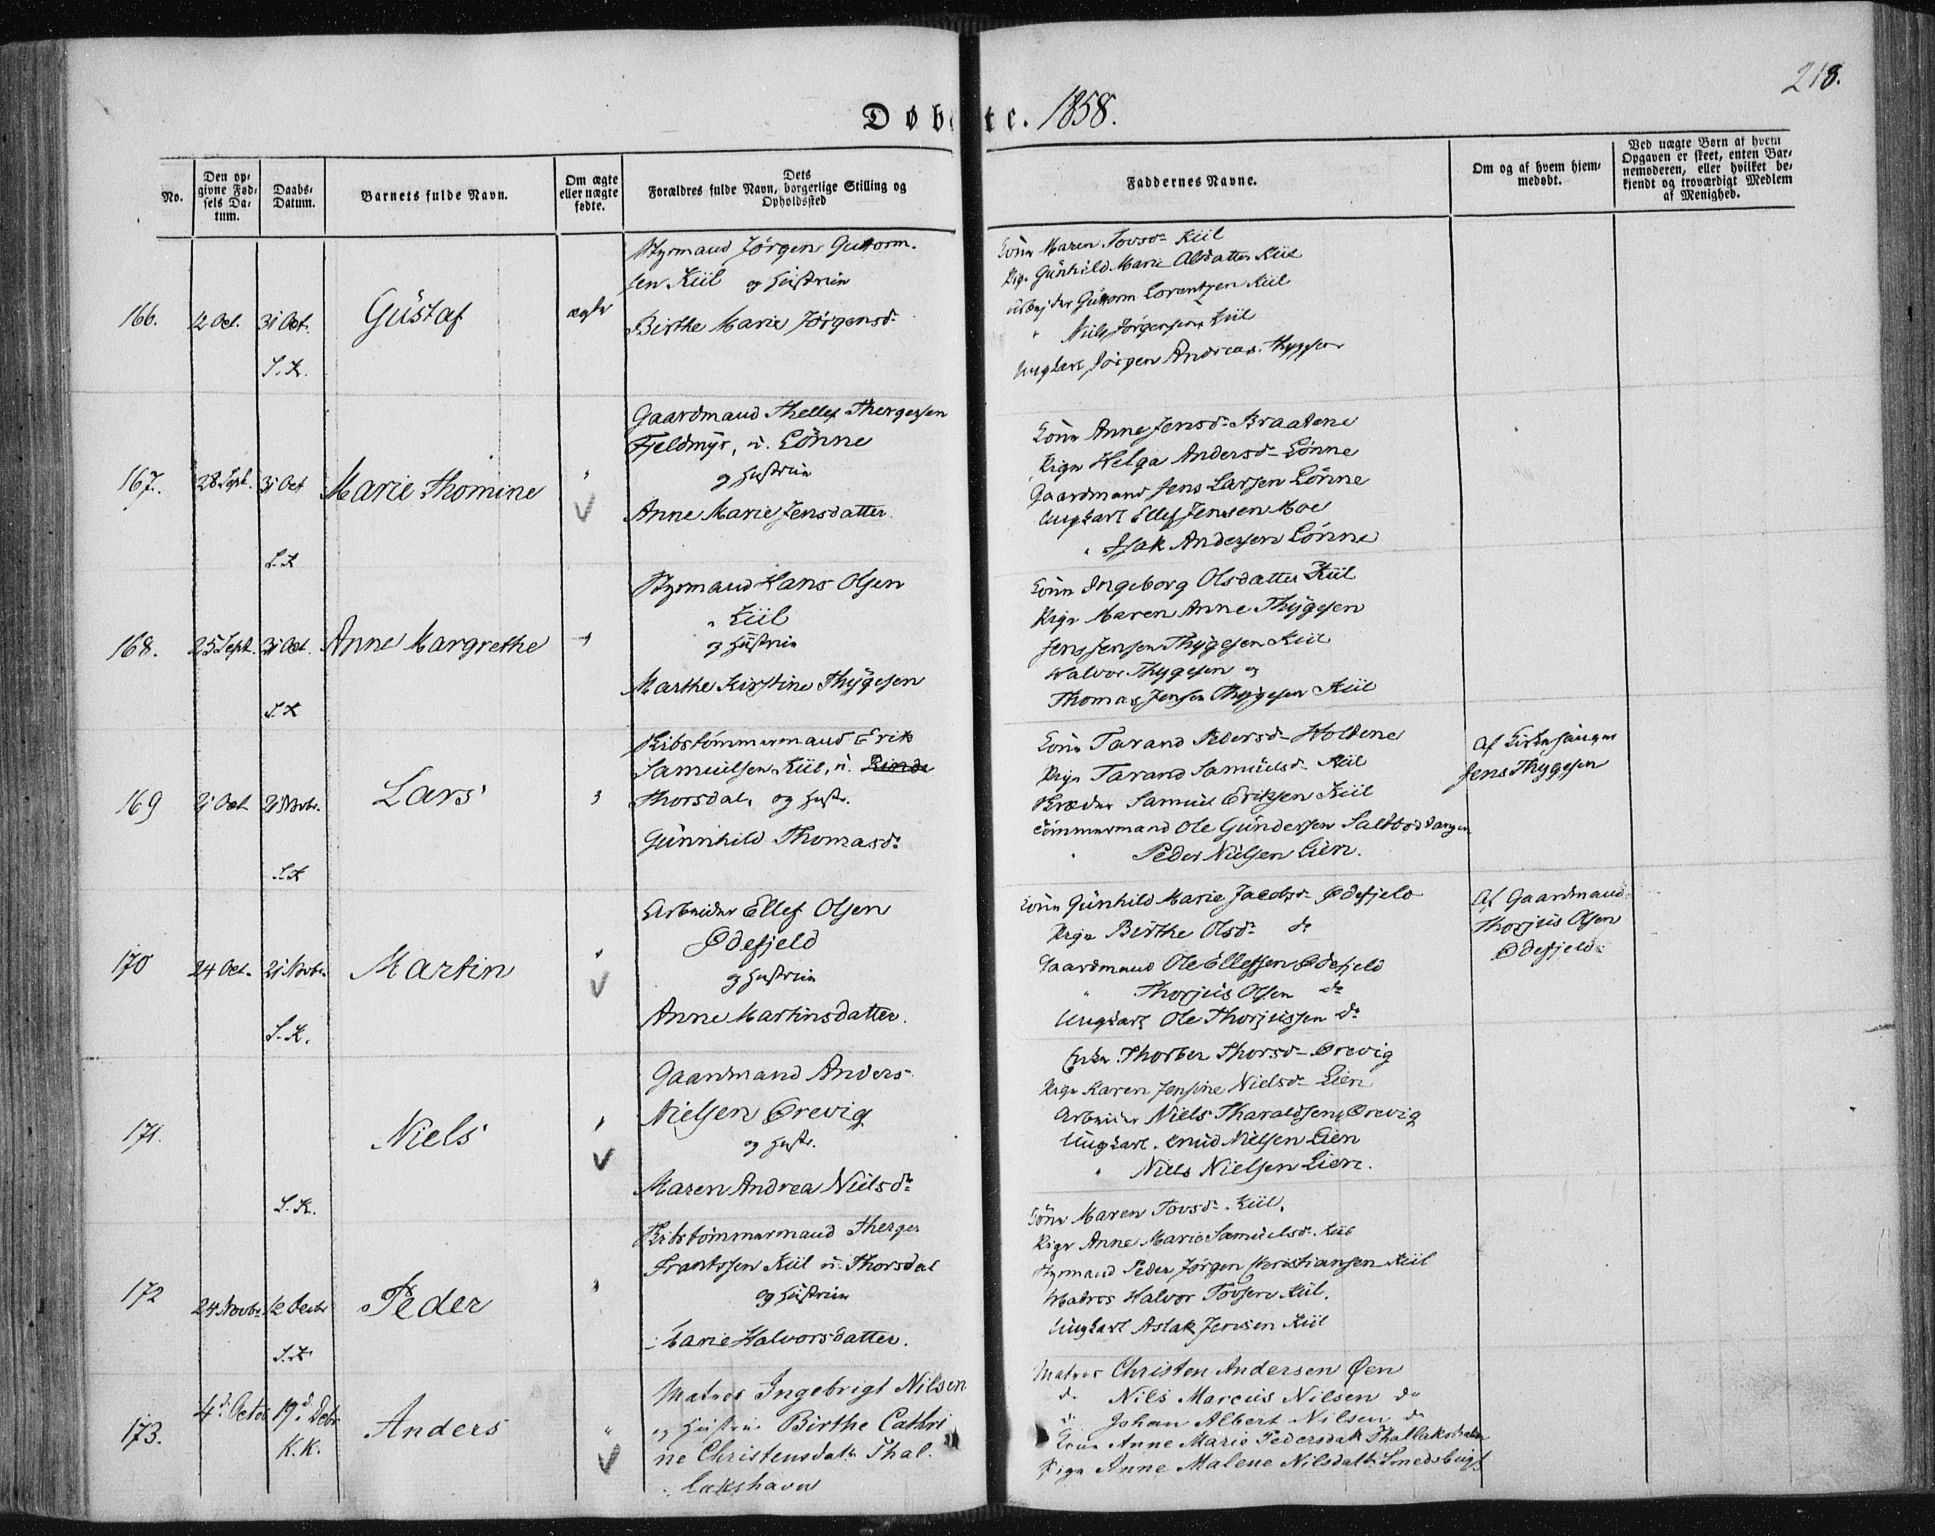 218.
Døbte. 1858.
No.
Den op-
givne Fød-
sels Da-
tum.
Daabs-
Datum.
Barnets fulde Navn.
Om ægte
eller uægte
fødte.
Dets
Forældres fulde Navn, borgerlige Stilling og
Opholdssted
Faddernes Navne.
Om og af hvem hjem-
medøbt.
Ved uægte Børn af hvem
Opgaven er skeet, enten Bar-
nemoderen, eller hvilket be-
kjendt og troværdigt Medlem
af Menighed.
166. 2 Oct. 31 Oct. S.K. Gustaf ægte
Styrmand Jørgen Guttorm-
sen Kiil og Hustrue
Birthe Marie Jørgensdr
Kone Maren Tovsdr Kiil
Pige Gunhild Marie Olsdatter Kiil
Arbejder Guttorm Lorentzen Kiil
" Niels Jørgensen Kiil
Ungkarl Jørgen Andreas Thygesen
167. 28 Sept. 31 Oct S.K Marie Thomine "
Gaardmand Thellef Thergersen
Fjeldmyr, u. Lønne
og Hustrue
Anne Marie Jensdatter.
Kone Anne Jensdr Braatene
Pige Helga Andersdr Lønne
Gaardmand Jens Larsen Lønne
Ungkarl Ellef Jensen Moe
" Isak Andersen Lønne
168. 25 Sept. 31 Oct. S.K Anne Margrethe "
Styrmand Hans Olsen
Kiil
og Hustrue
Marthe Kirstine Thygesen
Kone Ingeborg Olsdatter Kiil
Pige Maren Anne Thygesen
Jens Jensen Thygesen Kiil
Halvor Thygesen og
Thomas Jensen Thygesen Kiil
169 2 Oct 21 Novbr. S.K Lars "
Skibstømmermand Erik
Samuelsen Kiil, u.
Thorsdal, og Hustr.
Gunnhild Thomasdr
Kone Tarand Pedersdr Holtene
Pige Tarand Samuelsdr Kiil
Samuel Eriksen Kiil
Tømmermand Ole Gundersen Saltbodtangen
" Peder Nielsen Lien.
Af Kirkesanger
Jens Thygesen
170 24 Oct. 21 Novbr. S.K. Martin "
Arbeider Ellef Olsen
Ødefjeld
og Hustrue
Anne Martinsdatter.
Kone Gunhild Marie Jacobsdr Ødefjeld
Pige Birthe Olsdr do
Gaardmand Ole Ellefsen Ødefjeld
" Thorjus Olsen do
Ungkarl Ole Thorjussen do
Af Gaardmand
Thorjus Olsen
Ødefjeld
171. S.K. Niels "
Gaardmand Anders
Nielsen Ørevig
og Hustr.
Maren Andrea Nielsdr
Enke Thorber Thorsdr Ørevig
Pige Karen Jensine Nielsdr Lien
Arbeider Niels Tharaldsen Ørevig
Ungkarl Knud Nielsen Lien
" Niels Nielsen Lien.
172 24 Novbr 12 Decbr S.K Peder "
Skibstømmermand Therger
Frantssen Kiil u. Thorsdal
og Hustrue
Marie Halvorsdatter.
Kone Maren Tovsdr Kiil.
Pige Anne Marie Samuelsdr Kiil
Styrmand Peder Jørgen Christiansen Kiil
Matros Halvor Tovsen Kiil.
Ungkarl Aslak Jensen Kiil
173. 4d. Octob 19d. Debr K.K. Anders "
Matros Ingebrigt Nilsen
og Hustrue Birthe Cathri
ne Christensdatr Thal-
lakshavn
Matros Christen Andersen Øen
do Nils Marcus Nilsen do
do Johan Albert Nilsen do
Kone Anne Marie Pedersdatr Thallakshavn
Pige Anne Malene Nilsdatr Smedsbugt